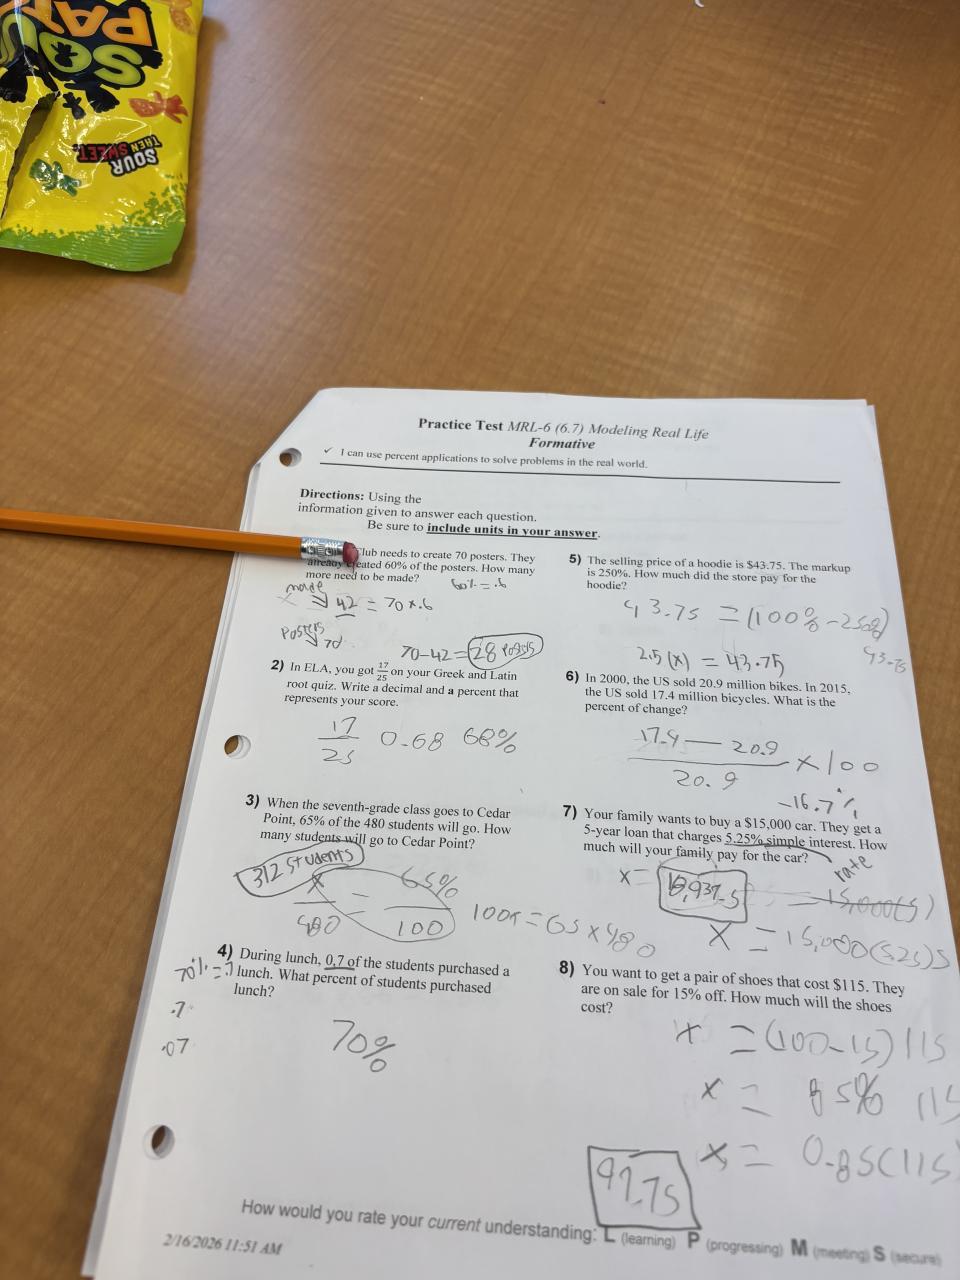 SOUR
PAT
SOUR
THEN SWEET.
Practice Test MRL-6 (6.7) Modeling Real Life
Formative
✓ I can use percent applications to solve problems in the real world.
Directions: Using the
information given to answer each question.
Be sure to include units in your answer.
lub needs to create 70 posters. They
already created 60% of the posters. How many
more need to be made?
60% = .6
made
42 = 70 x .6
Posters
70
70-42 = 28 Posters
2) In ELA, you got 17/25 on your Greek and Latin
root quiz. Write a decimal and a percent that
represents your score.
17/25 0.68 68%
3) When the seventh-grade class goes to Cedar
Point, 65% of the 480 students will go. How
many students will go to Cedar Point?
312 students
x/480 = 65%/100
100x = 65 x 480
4) During lunch, 0.7 of the students purchased a
lunch. What percent of students purchased
lunch?
70% = .7
.7
.07
70%
5) The selling price of a hoodie is $43.75. The markup
is 250%. How much did the store pay for the
hoodie?
43.75 = (100% - 250%)
43.75
2.5 (x) = 43.75
6) In 2000, the US sold 20.9 million bikes. In 2015,
the US sold 17.4 million bicycles. What is the
percent of change?
17.4 — 20.9
20.9
x 100
-16.7%
7) Your family wants to buy a $15,000 car. They get a
5-year loan that charges 5.25% simple interest. How
much will your family pay for the car?
rate
x = 18,937.5 = 15,000(5)
x = 15,000(5.25)5
8) You want to get a pair of shoes that cost $115. They
are on sale for 15% off. How much will the shoes
cost?
x = (100-15) 115
x = 85% 115
x = 0.85(115)
97.75
How would you rate your current understanding: L (learning) P (progressing) M (meeting) S (secure)
2/16/2026 11:51 AM